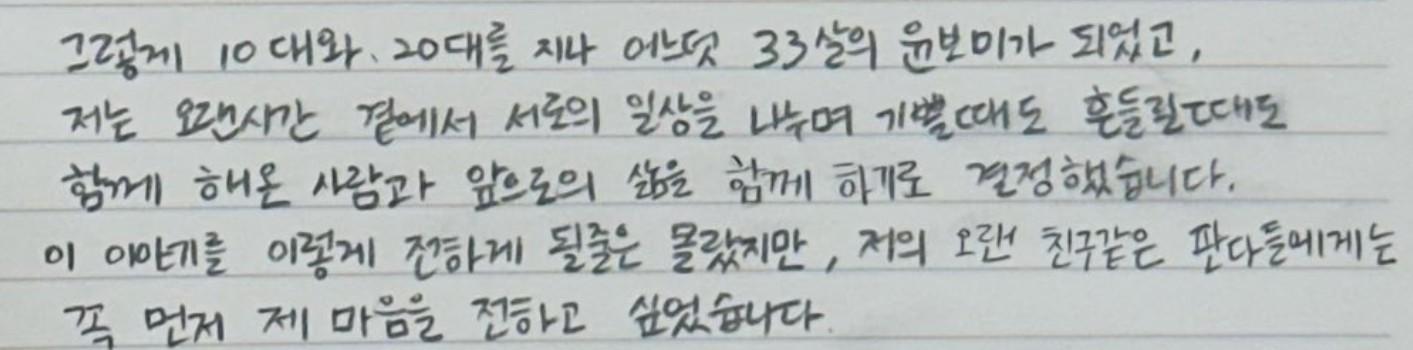 그렇게 10대와. 20대를 지나 어느덧 33살의 윤보미가 되었고,
저는 오랜시간 곁에서 서로의 일상을 나누며 기쁠때도 흔들릴때도
함께 해온 사람과 앞으로의 삶을 함께 하기로 결정했습니다.
이 이야기를 이렇게 전하게 될줄은 몰랐지만, 저의 오랜 친구같은 판다들에게는
꼭 먼저 제 마음을 전하고 싶었습니다.